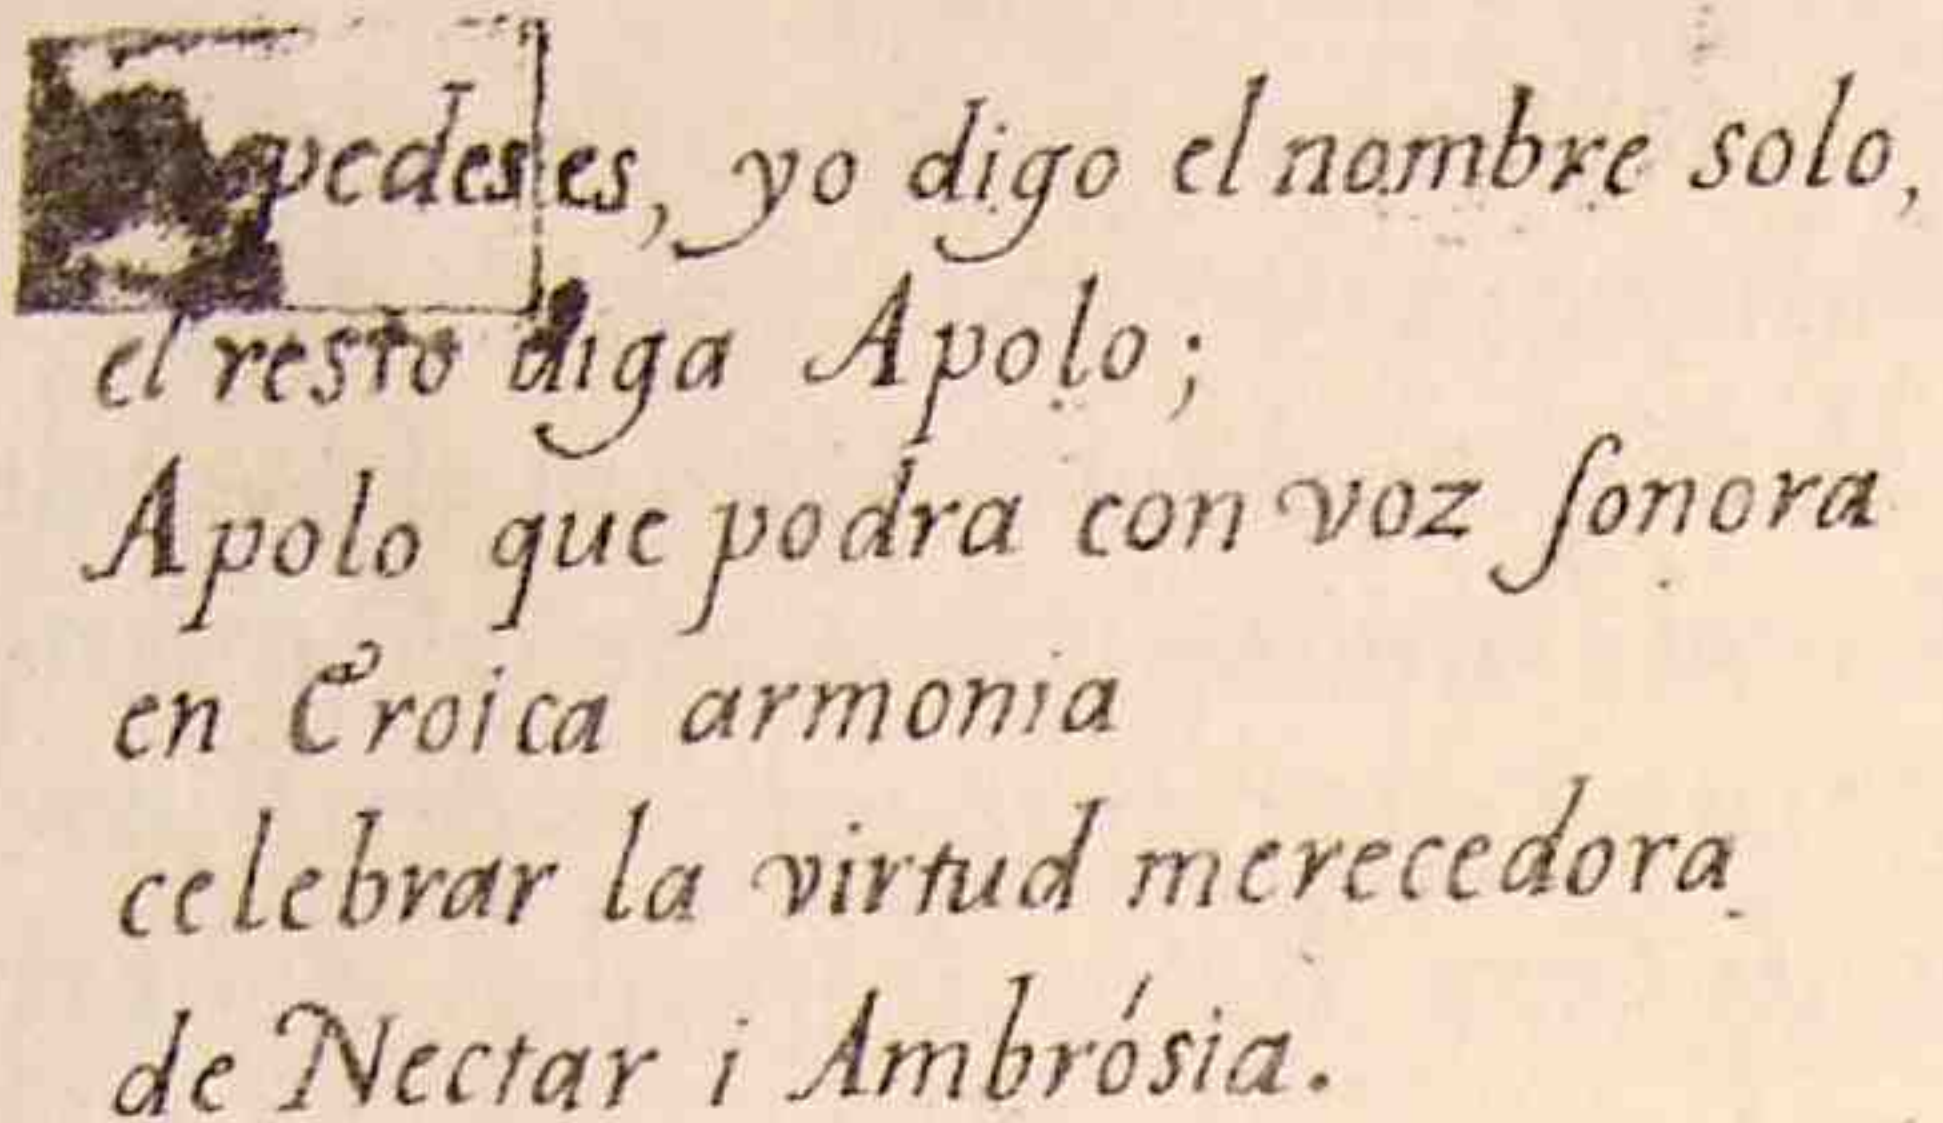 es, yo digo el nombre solo,
el resto diga Apolo;
Apolo que podra con voz ſonora
en Eroica armonia
celebrar la virtud merecedora
de Nectar i Ambrósia.